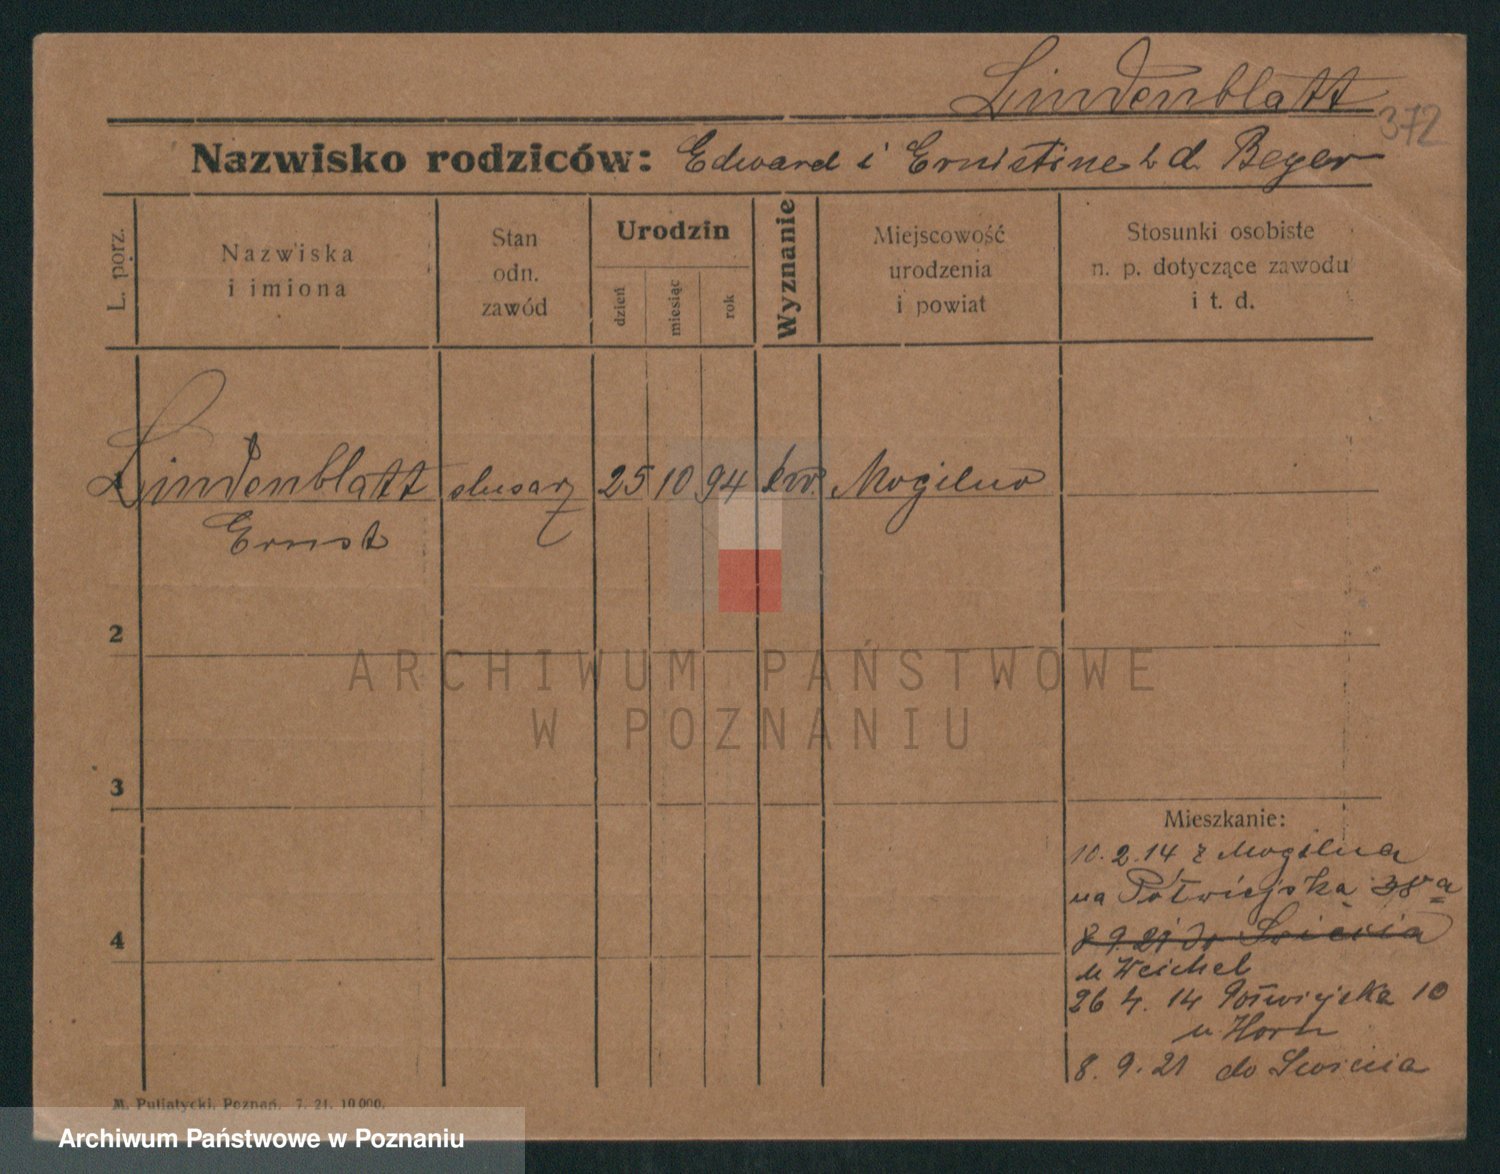 Lindenblatt
372
Nazwisko rodziców: Edward i Ernistine z d. Beyer
L. porz.
Nazwiska
i imiona
Stan
odn.
zawód
Urodzin
dzień
miesiąc
rok
Wyznanie
Miejscowość
urodzenia
i powiat
Stosunki osobiste
n. p. dotyczące zawodu
i t. d.
1 Lindenblatt ślusarz 25 10 94 ew. Mogilno
Ernst
2
ARCHIWUM PAŃSTWOWE
W POZNANIU
3
Mieszkanie:
10.2.14 z Mogilna
na Półwiejska 38a
4
8.9.21 do
u Weichel
26 4. 14 Półwiejska 10
u Horn
8. 9. 21 do
M. Putiatycki, Poznań. 7. 21. 10000.
Archiwum Państwowe w Poznaniu